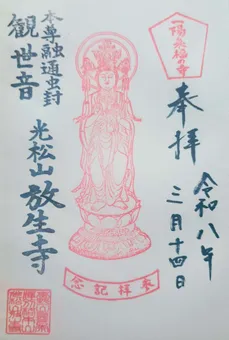 一陽来福の寺
奉拝
令和八年
三月十四日
本尊融通虫封
観世音
光松山放生寺
参拝記念